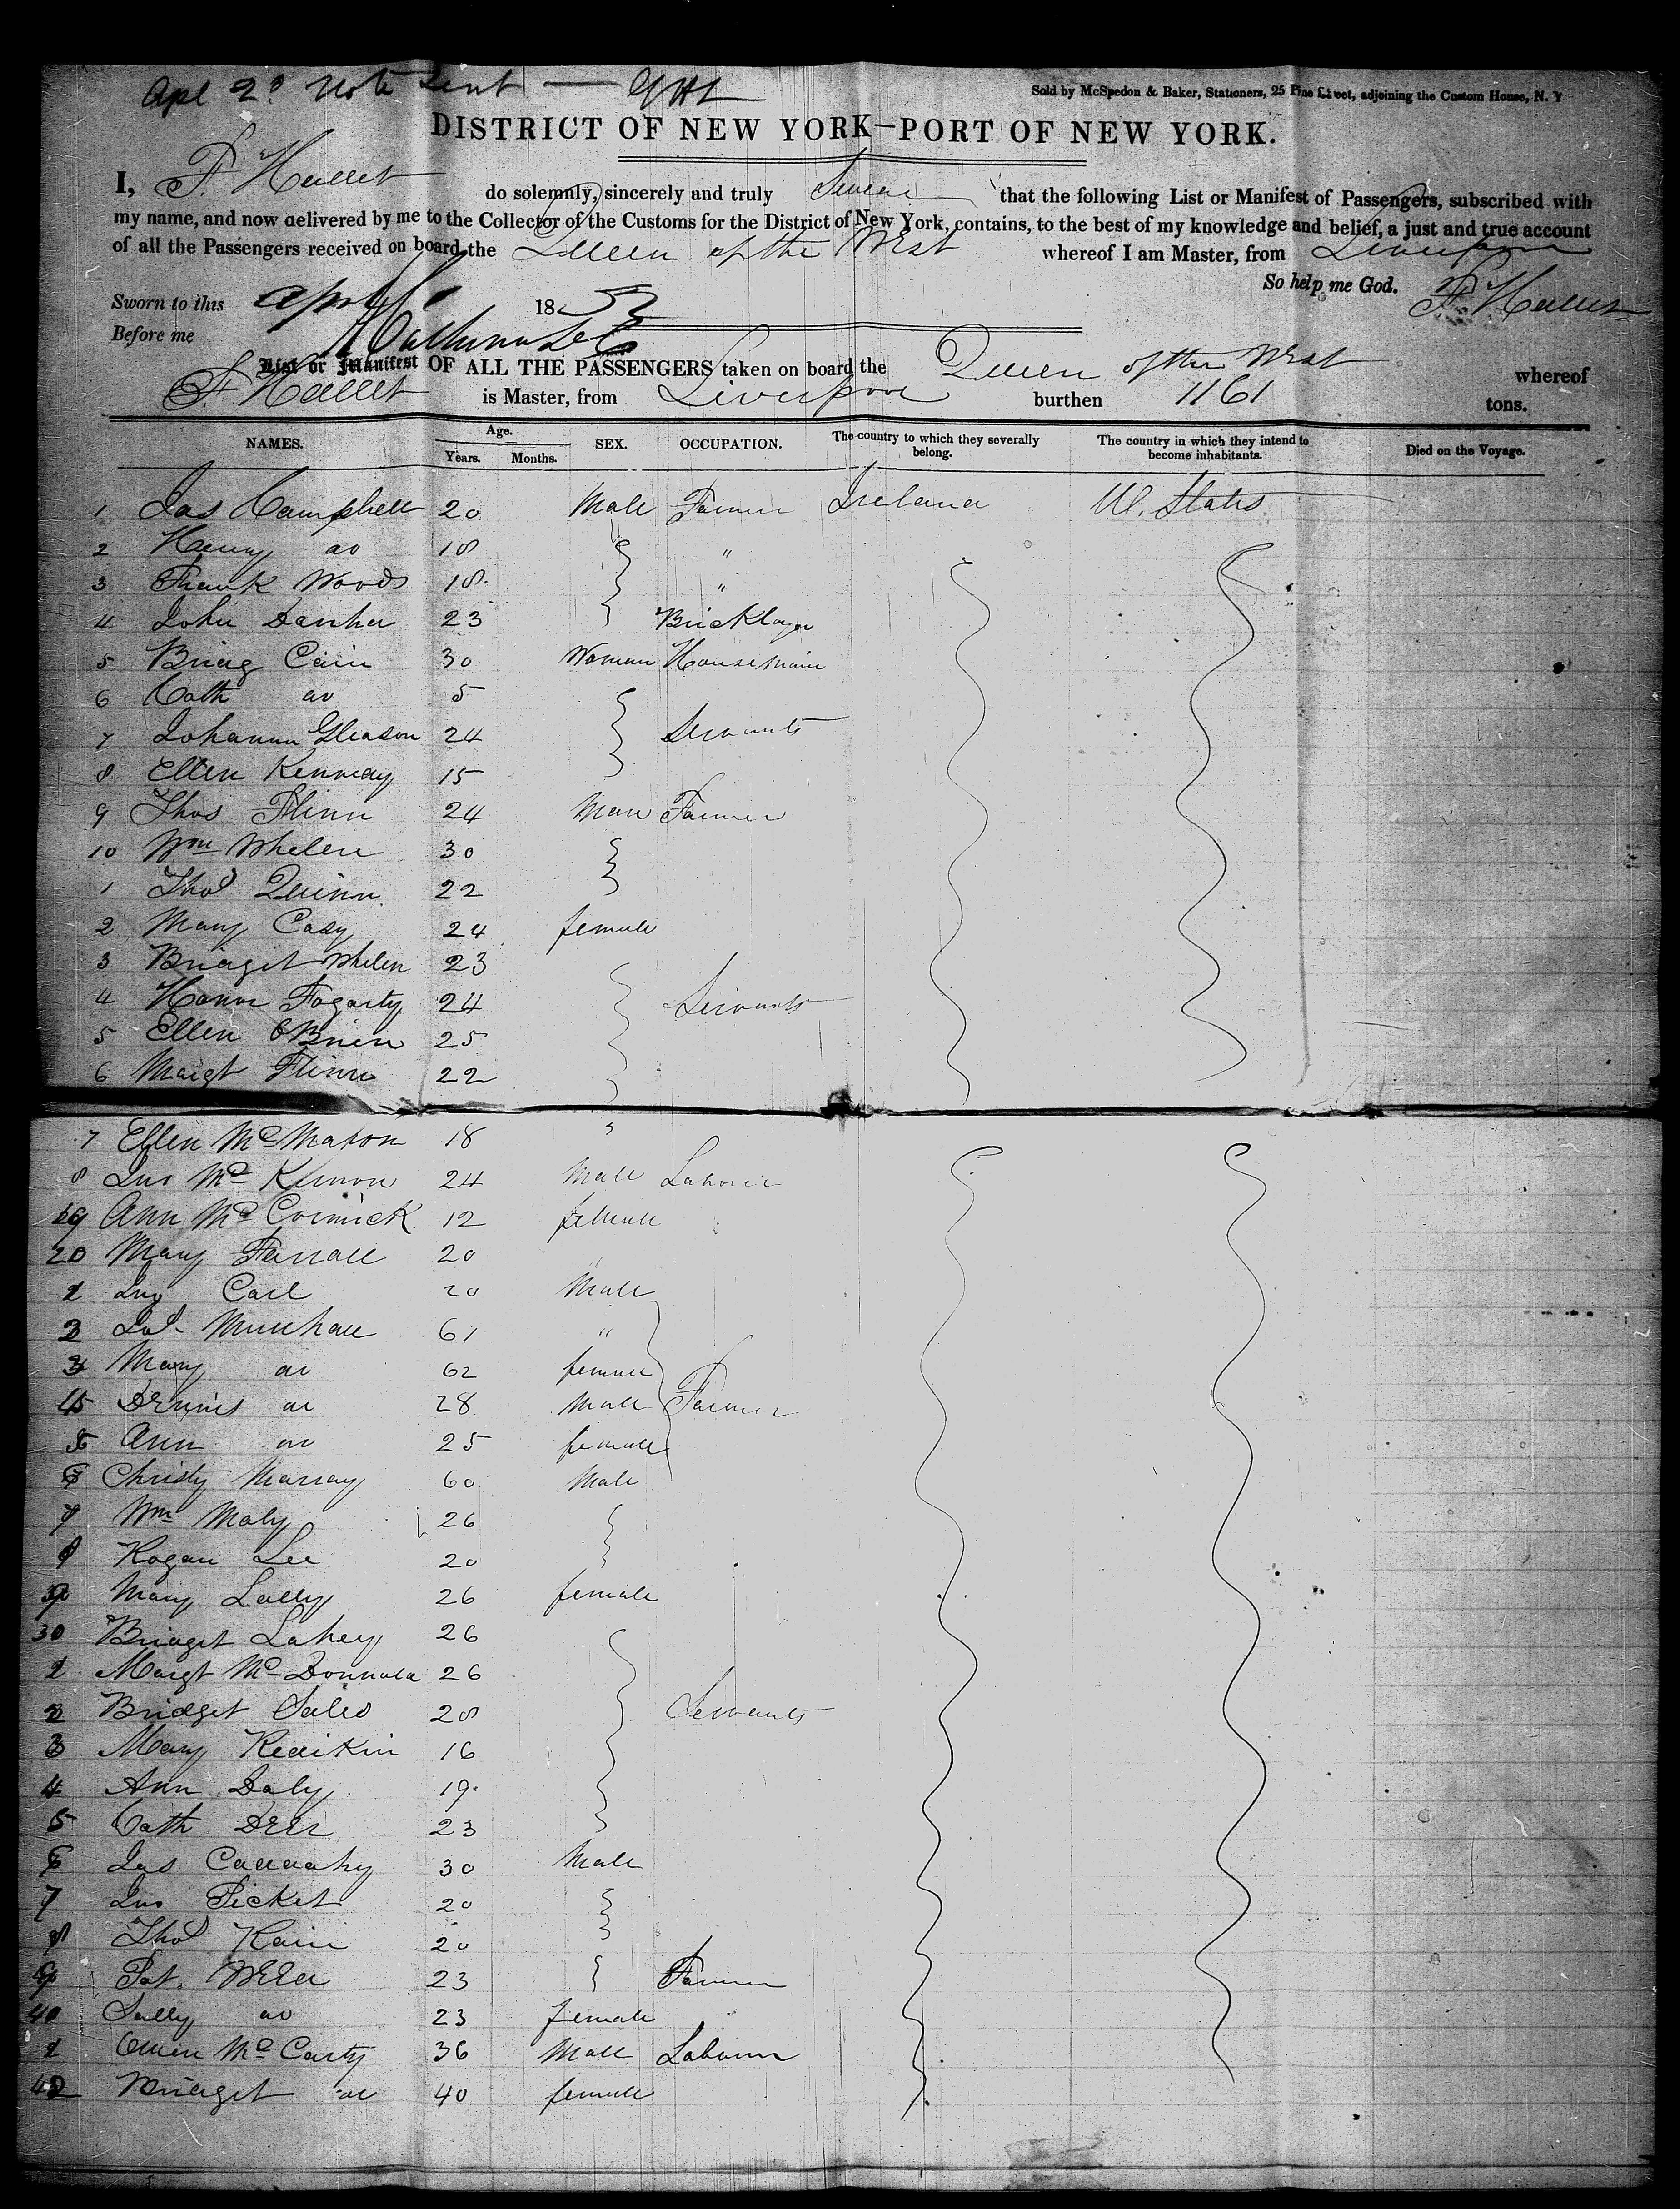 Apl 2d Note Sent — GHL
Sold by McSpedon & Baker, Stationers, 25 Pine Street, adjoining the Custom House, N. Y
DISTRICT OF NEW YORK—PORT OF NEW YORK.
I, F. Hallet do solemnly, sincerely and truly Swear that the following List or Manifest of Passengers, subscribed with
my name, and now delivered by me to the Collector of the Customs for the District of New York, contains, to the best of my knowledge and belief, a just and true account
of all the Passengers received on board the Queen of the West whereof I am Master, from Liverpool
So help me God. F. Hallet
Sworn to this April 1853
Before me
List or Manifest OF ALL THE PASSENGERS taken on board the Queen of the West whereof
F. Hallet is Master, from Liverpool burthen 1161 tons.
NAMES. Age. Years. Months. SEX. OCCUPATION. The country to which they severally belong. The country in which they intend to become inhabitants. Died on the Voyage.
1 Jas Campbell 20 Male Farmer Ireland U. States
2 Henry do 18 "
3 Frank Woods 18 "
4 John Danher 23 Bricklayer
5 Bridg Cain 30 Woman Housemaid
6 Cath do 5
7 Johanna Gleason 24 Servants
8 Ellen Kennedy 15
9 Thos Flinn 24 Man Farmer
10 Wm Whelen 30
1 Thos Quinn 22
2 Mary Cady 24 female
3 Bridget Whelen 23
4 Honor Fogarty 24 Servants
5 Ellen OBrien 25
6 Margt Flinn 22
7 Ellen Mc Mahon 18 "
8 Jno Mc Kernon 24 Male Labourer
19 Ann Mc Cormick 12 female
20 Mary Farrall 20
1 Jno Carl 20 Male
2 Pat Mullhall 61 "
3 Mary do 62 female
4 Dennis do 28 Male Farmer
5 Ann do 25 female
6 Christy Murray 60 Male
7 Wm Maly 26
8 Hogan Lee 20
9 Mary Lally 26 female
30 Bridget Lahey 26
1 Margt Mc Donnald 26
2 Bridget Sales 20 Servants
3 Mary Readkin 16
4 Ann Daly 19
5 Cath Derr 23
6 Jas Callaghy 30 Male
7 Jno Picket 20
8 Thos Kain 20
9 Pat. 23 Farmer
40 Sally do 23 female
1 Owen Mc Carty 36 Male Labourer
42 Bridget do 40 female